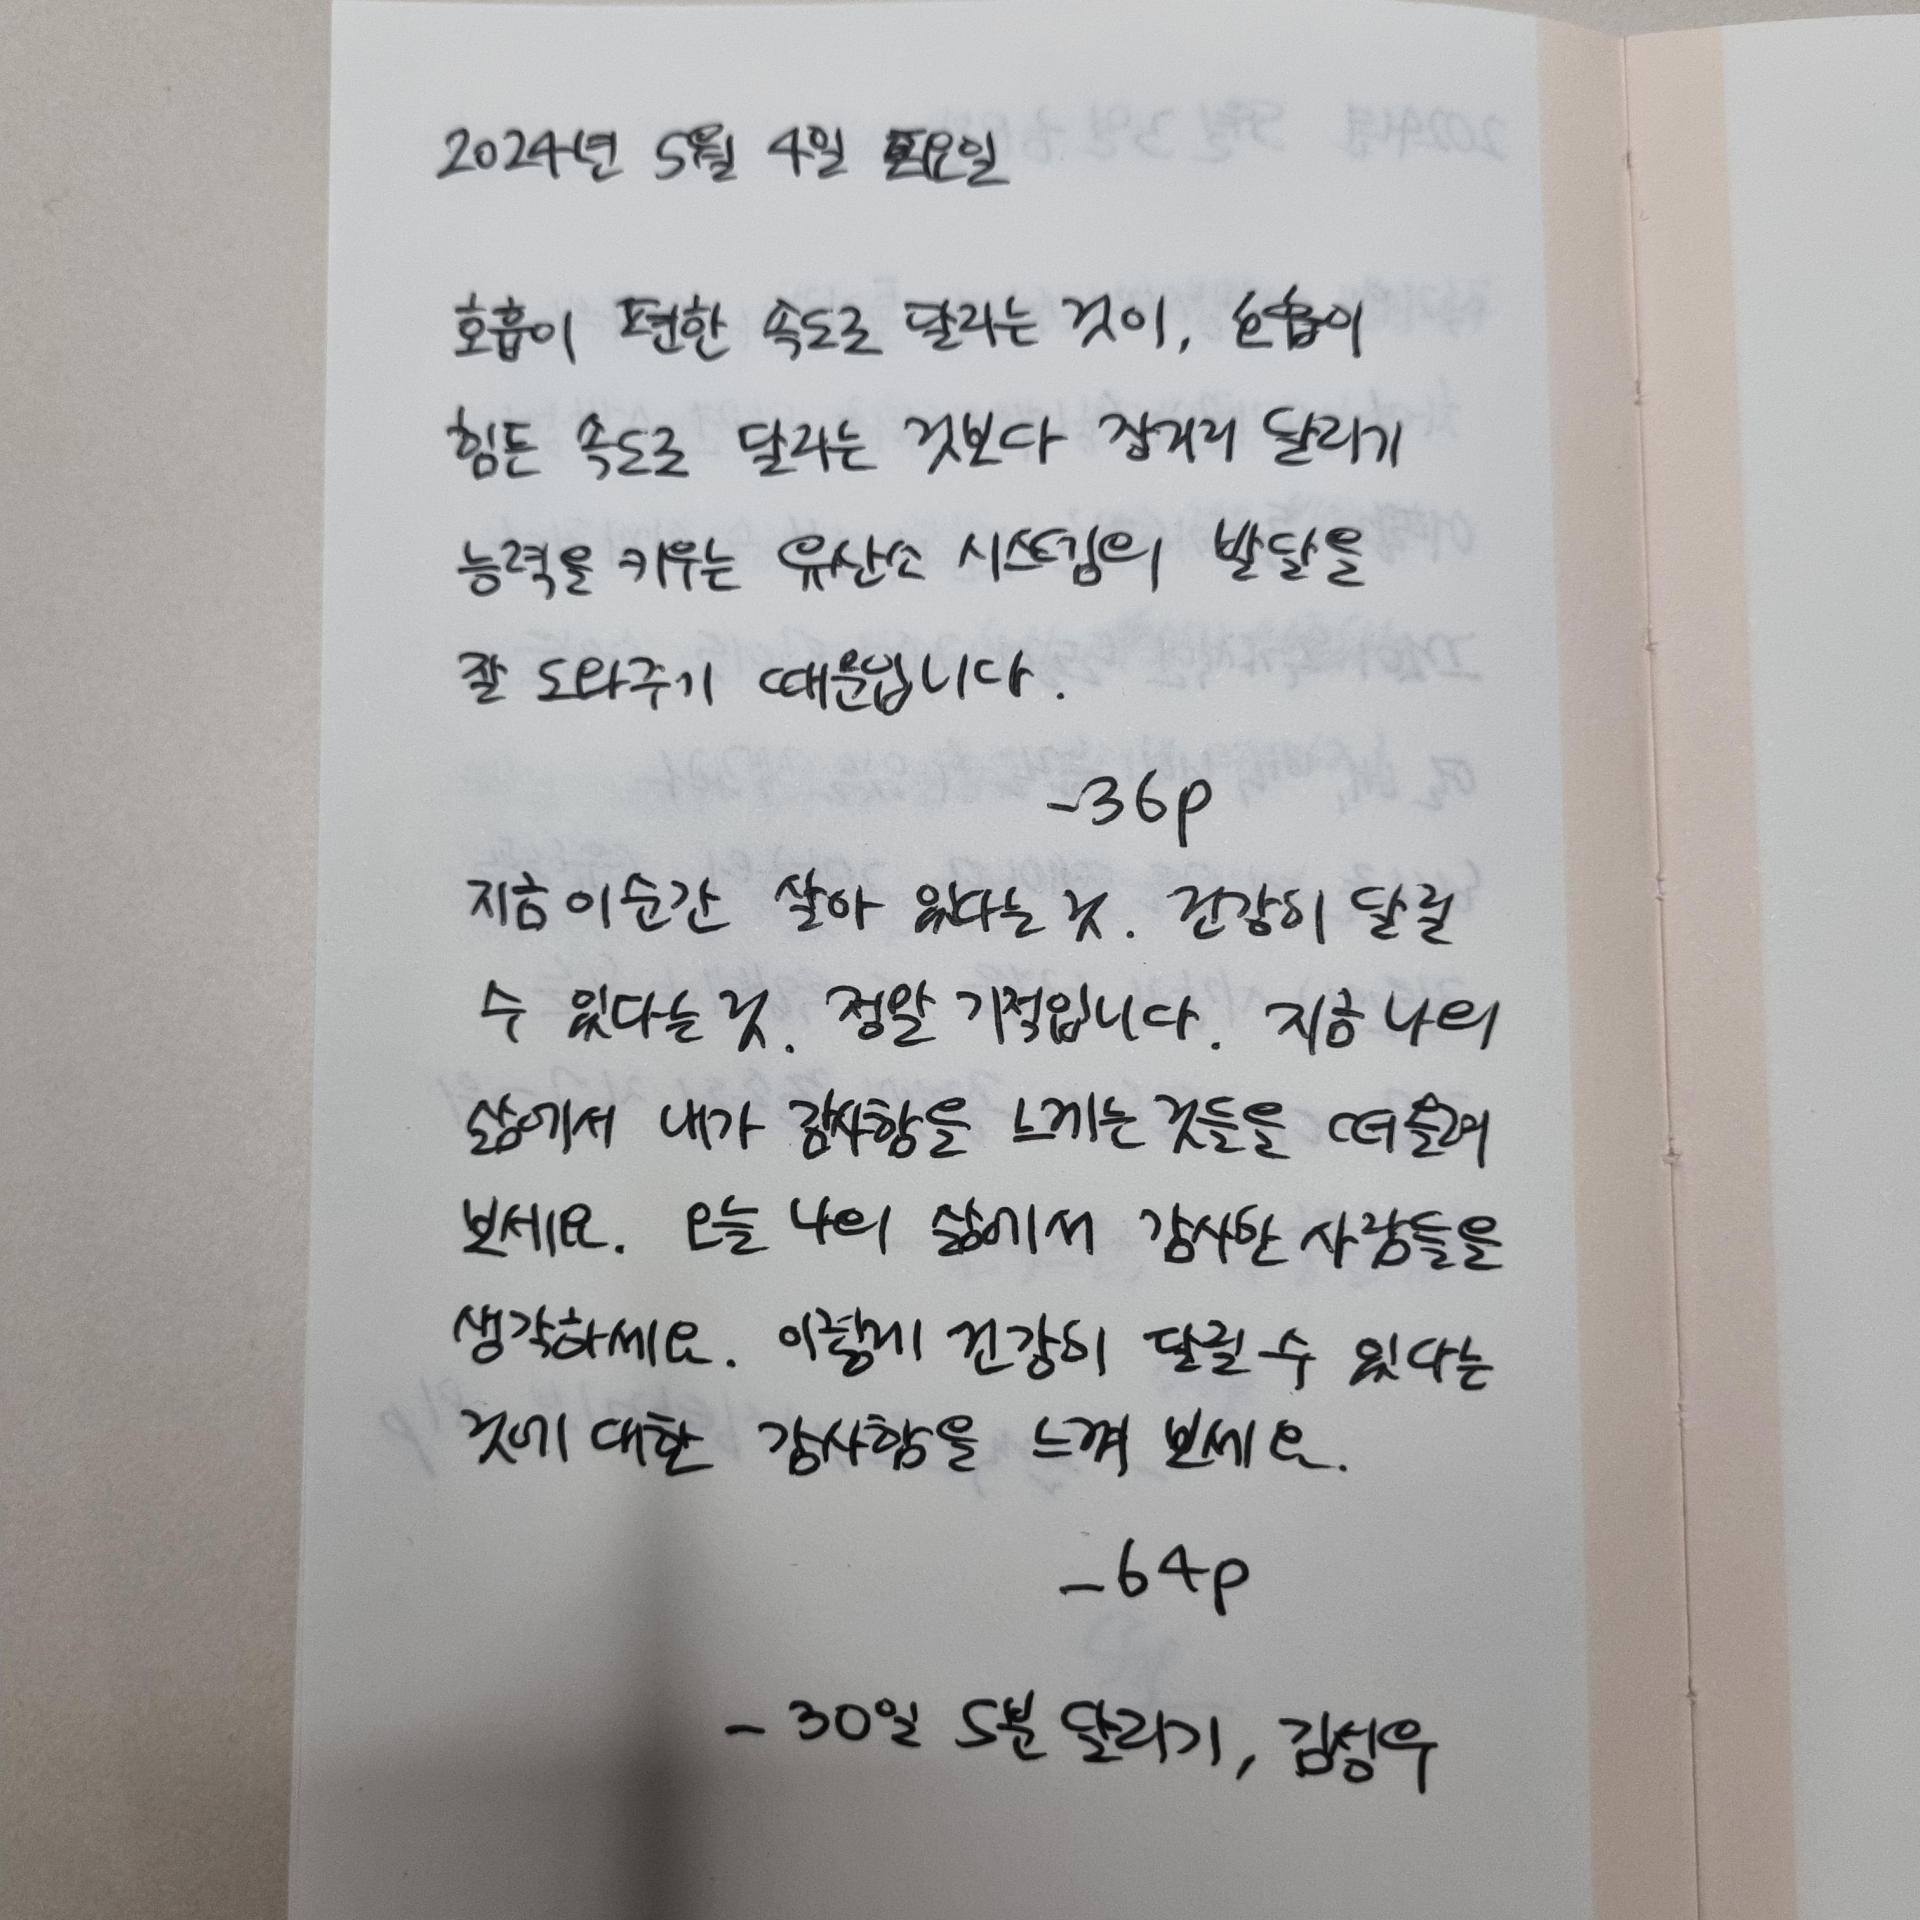 2024년 5월 4일 토요일
호흡이 편한 속도로 달라는 것이, 호흡이
힘든 속도로 달라는 것보다 장거리 달리기
능력을 키우는 유산소 시스템의 발달을
잘 도와주기 때문입니다.
-36p
지금 이 순간 살아 있다는 것. 건강히 달릴
수 있다는 것. 정말 기적입니다. 지금 나의
삶에서 내가 감사함을 느끼는 것들을 떠올려
보세요. 오늘 나의 삶에서 감사한 사람들을
생각하세요. 이렇게 건강히 달릴 수 있다는
것에 대한 감사함을 느껴 보세요.
-64p
- 30일 5분 달리기, 김성우